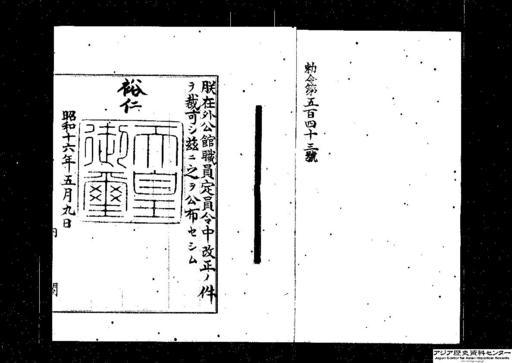 勅令第五百四十三號
朕在外公館職員定員令中改正ノ件
ヲ裁可シ茲ニ之ヲ公布セシム
裕仁
天皇
御璽
昭和十六年五月九日
内
閣
アジア歴史資料センター
Japan Center for Asian Historical Records